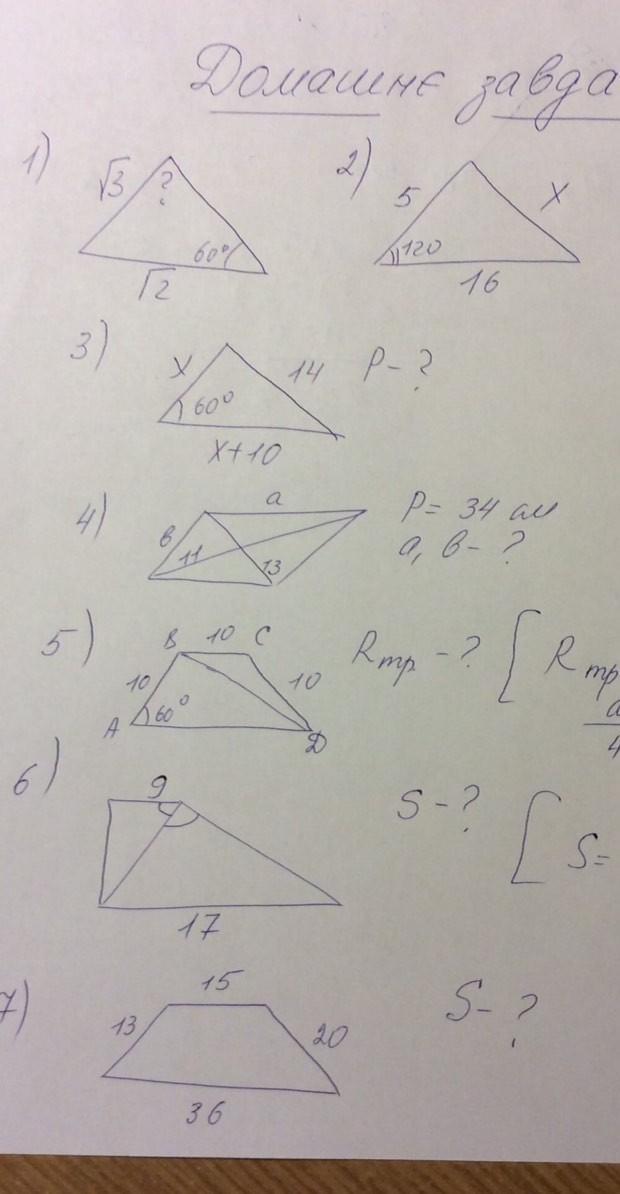 Домашнє завда
1) √3 ? 60° √2
2) 5 x 120 16
3) x 14 60° x+10 P-?
4) a в 11 13 P= 34 см
a, в-?
5) B 10 C 10 10 A 60° D Rтр -? [ Rтр
a
4
6) 9 17 S-? [ S=
7) 15 13 20 36 S-?